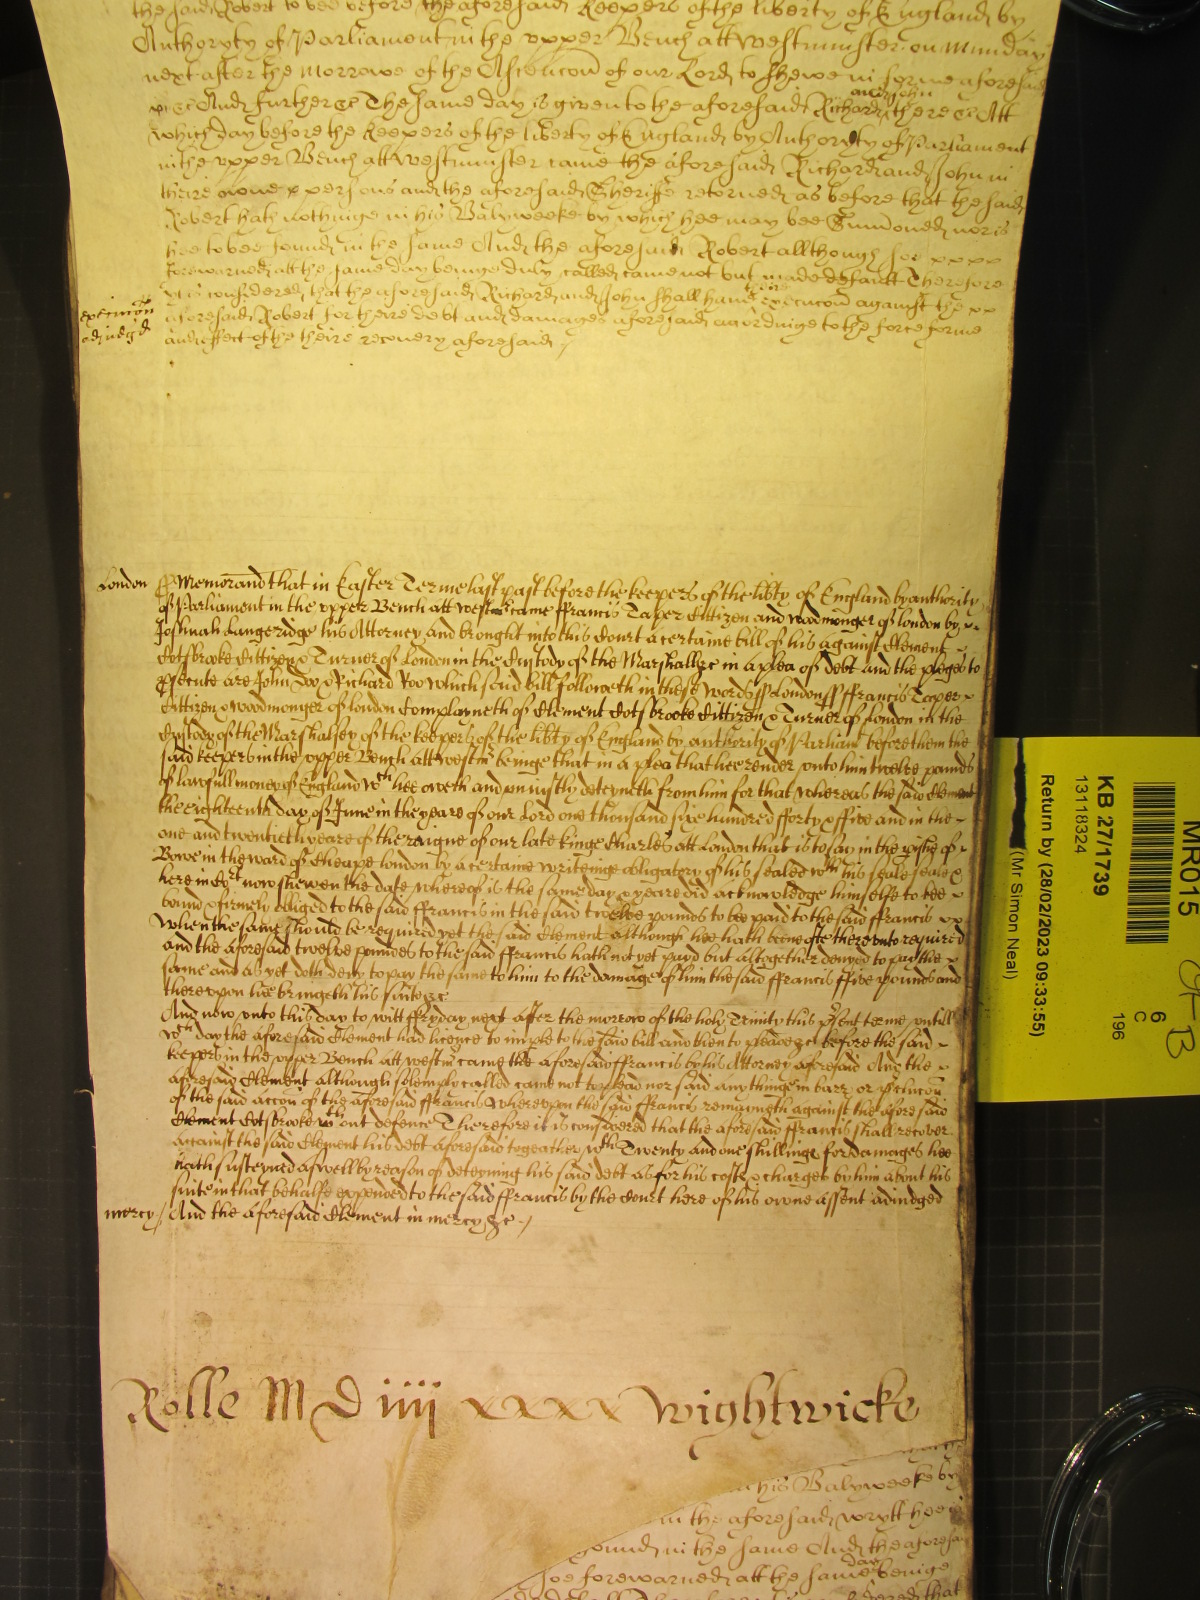 the said Robert to bee before the aforesaid Keepers of the liberty of England by
Authority of Parliament in the upper Bench att Westminster on Munday
next after the Morrowe of the Ascencon of our Lord to shewe in forme aforesaid
&c And further &c The same day is given to the aforesaid Richard and John there &c Att
which day before the Keepers of the liberty of England by Authority of Parliament
in the upper Bench att Westminster came the aforesaid Richard and John in
theire owne x persons and the aforesaid Sheriffe retorned as before that the said
Robert hath nothinge in his Balyweeke by which hee may bee Sumoned nor is
hee to bee found in the same And the aforesaid Robert allthough soe xxxx
forewarned att the same day beinge duly called came not but made default Therefore
yt is considered that the aforesaid Richard and John shall have theire execucon against the xx
aforesaid Robert for theire debt and damages aforesaid accordinge to the force forme
and effect of the theire recovery aforesaid
execucon
adiudgd
London
Memorand that in Easter Terme last past before the keepers of the libty of England by authority
of Parliament in the upper Bench att Westm came ffrancis Taper Cittizen and woodmonger of London by
Joshuah Langeridge his Attorney and brought into this Court a certaine bill of his against Clement
Cotsbrooke Cittizen & Turner of London in the Custody of the Marshall &c in a plea of debt and the pleges to
p̱secute are John Doo & Richard Roo which said bill followeth in these words ss London ss ffrancis Taper
Cittizen & Woodmonger of London Complayneth of Clement Cotsbrooke Cittizen & Turner of London in the
Custody of the Marshalsey of the keepers of the libty of England by authority of Parliamt before them the
said keepers in the upper Bench att Westm beinge that in a plea that hee render unto him twelve pounds
of lawfull money of England wch hee oweth and uniustly deteyneth from him for that whereas the said Clement
the eighteenth day of June in the yeare of our Lord one thousand sixe hundred fforty & ffive and in the
one and twentieth yeare of the raigne of our late Kinge Charles att London that is to say in the pishe of
Bowe in the ward of Cheape London by a certaine writeinge obligatory of his sealed wth his seale seale &
here in Cort now shewen the date whereof is the same day & yeare did acknowledge himselfe to bee
bound & firmely obliged to the said ffrancis in the said twelve pounds to bee paid to the said ffrancis
When the same should be required yet the said Clement although hee hath beene ofte thereunto required
and the aforesaid twelve pounds to the said ffrancis hath not yet payd but altogether denyed to pay the
same and as yet doth deny to pay the same to him to the damage of him the said ffrancis ffive pounds and
thereupon hee bringeth his suite &c
And now unto this day to witt ffryday next after the morrow of the holy Trinity this psent terme untill
wch day the aforesaid Clement had licence to imple to the said bill and then to pleade &c before the said
keepers in the upper Bench att Westm came the aforesaid ffrancis by his Attorney aforesaid And the
aforesaid Clement although solemply called came not to plead nor said any thinge in barr or pclusion
of the said accon of the aforesaid ffrancis Whereupon the said ffrancis remayneth against the aforesaid
Clement Cotsbrooke wth out defence Therefore it is considered that the aforesaid ffrancis shall recover
against the said Clement his debt aforesaid togeather wth Twenty and one shillinge for damages hee
hath susteyned aswell by reason of deteyning his said debt as for his costs & charges by him about his
suite in that behalfe expended to the said ffrancis by the Court here of his owne assent adiudged
And the aforesaid Clement in mercy &c
mercy
Rolle M D iiij xxxx Wightwicke
his Balyweeke by
in the aforesaid wrytt hee
found in the same And the aforesa
soe forewarned att the same day beinge
dered that
MR015
KB 27/1739
13118324
Return by (28/02/2023 09:33:55)
(Mr Simon Neal)
6
C
196